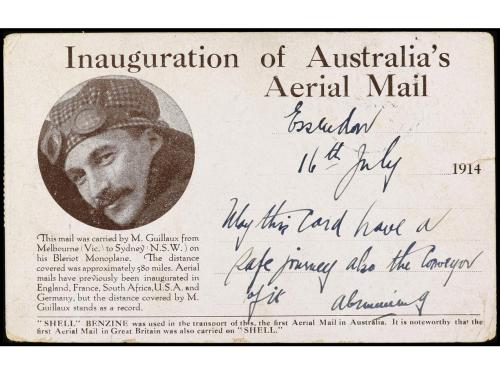 Inauguration of Australia's
Aerial Mail
Essendon
16th July 1914
May this card have a
safe journey also the conveyor
of it
This mail was carried by M. Guillaux from
Melbourne (Vic.) to Sydney (N.S.W.) on
his Bleriot Monoplane. The distance
covered was approximately 580 miles. Aerial
mails have previously been inaugurated in
England, France, South Africa, U.S.A. and
Germany, but the distance covered by M.
Guillaux stands as a record.
"SHELL" BENZINE was used in the transport of this, the first Aerial Mail in Australia. It is noteworthy that the
first Aerial Mail in Great Britain was also carried on "SHELL."